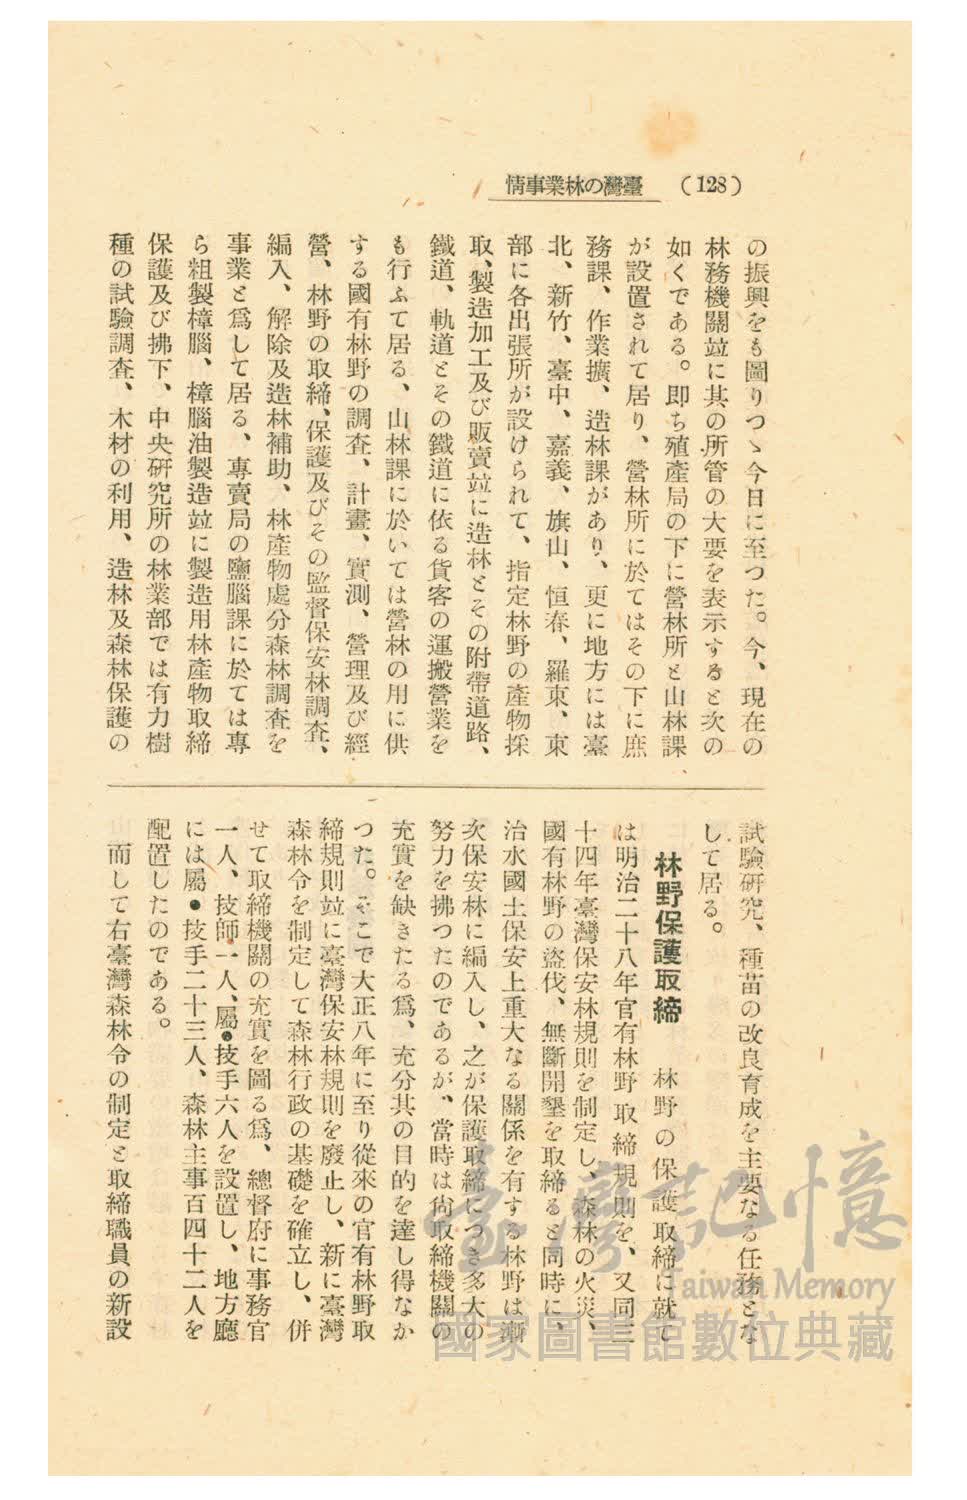 (128) 臺灣の林業事情
の振興をも圖りつゝ今日に至つた。今、現在の
林務機關竝に其の所管の大要を表示すると次の
如くである。即ち殖產局の下に營林所と山林課
が設置されて居り、營林所に於てはその下に庶
務課、作業擴、造林課があり、更に地方には臺
北、新竹、臺中、嘉義、旗山、恒春、羅東、東
部に各出張所が設けられて、指定林野の產物採
取、製造加工及び販賣竝に造林とその附帶道路、
鐵道、軌道とその鐵道に依る貨客の運搬營業を
も行ふて居る、山林課に於いては營林の用に供
する國有林野の調査、計畫、實測、營理及び經
營、林野の取締、保護及びその監督保安林調査、
編入、解除及造林補助、林產物處分森林調査を
事業と爲して居る、專賣局の鹽腦課に於ては專
ら粗製樟腦、樟腦油製造竝に製造用林產物取締
保護及び拂下、中央硏究所の林業部では有力樹
種の試驗調査、木材の利用、造林及森林保護の
試驗硏究、種苗の改良育成を主要なる任務とな
して居る。
林野保護取締 林野の保護取締に就て
は明治二十八年官有林野取締規則を、又同三
十四年臺灣保安林規則を制定し、森林の火災、
國有林野の盜伐、無斷開墾を取締ると同時に、
治水國土保安上重大なる關係を有する林野は漸
次保安林に編入し、之が保護取締につき多大の
努力を拂つたのであるが、當時は尙取締機關の
充實を缺きたる爲、充分其の目的を達し得なか
つた。そこで大正八年に至り從來の官有林野取
締規則竝に臺灣保安林規則を廢止し、新に臺灣
森林令を制定して森林行政の基礎を確立し、併
せて取締機關の充實を圖る爲、總督府に事務官
一人、技師一人、屬•技手六人を設置し、地方廳
には屬•技手二十三人、森林主事百四十二人を
配置したのである。
而して右臺灣森林令の制定と取締職員の新設
臺灣記憶
Taiwan Memory
國家圖書館數位典藏